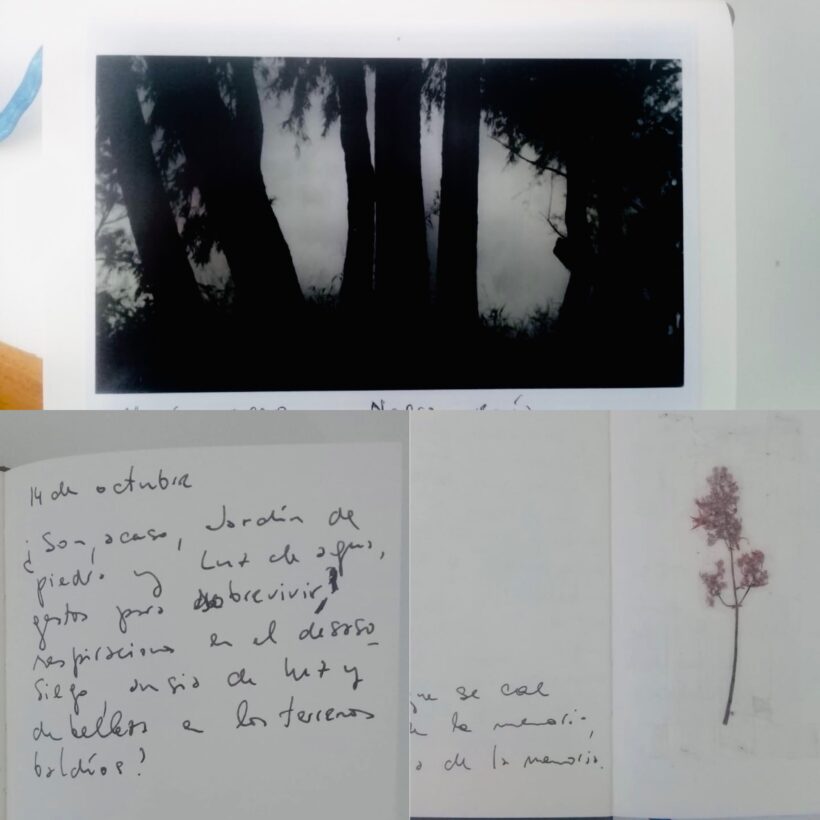 14 de octubre
¿Son, acaso, Jardín de
piedra y Luz de agua,
gestos para sobrevivir,
respiraciones en el desaso_
siego, ansia de luz y
de belleza en los terrenos
baldíos?
que se cae
de la memoria,
de la memoria.